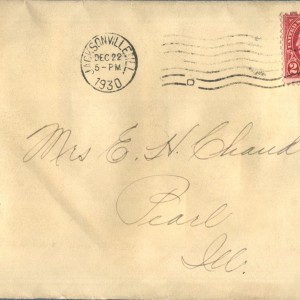 JACKSONVILLE, ILL.
DEC 22
5-PM
1930
2
Mrs E. H. Chand
Pearl
Ill.